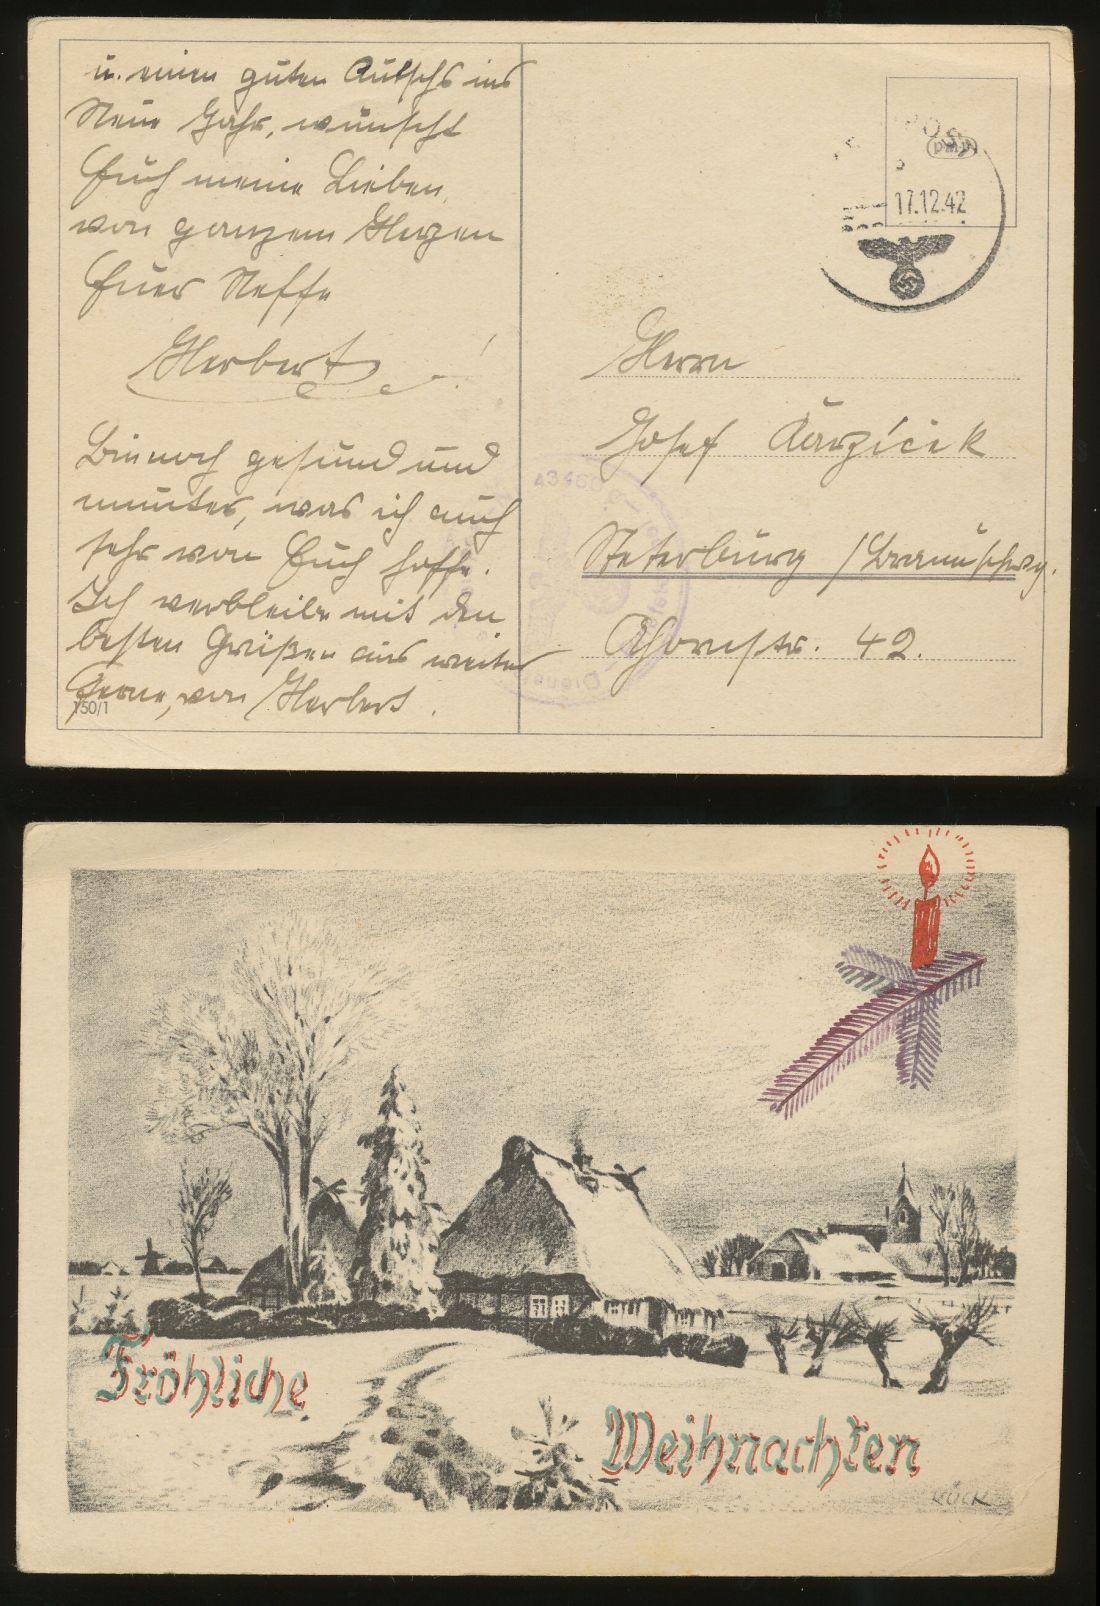 u. einen guten Rutsch ins
Neue Jahr, wünscht
Euch meine Lieben,
von ganzem Herzen
Euer Neffe
Herbert!
Bin noch gesund und
munter, was ich auch
sehr von Euch hoffe.
Ich verbleibe mit den
besten Grüßen aus weiter
Ferne, von Herbert.
150/1
17.12.42
Herrn
Josef
Steterburg / Braunschwg.
str. 42.
43460
Fröhliche
Weihnachten